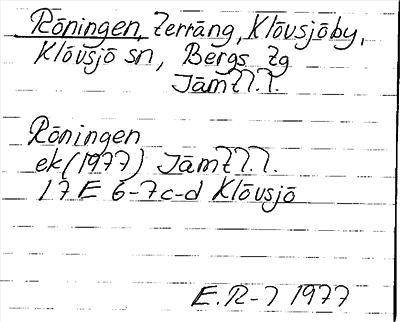 Röningen, Terräng, Klövsjöby,
Klövsjö sn, Bergs tg
Jämtl.l.
Röningen
ek (1977) Jämtl.l.
17E 6-7c-d Klövsjö
E.R-7 1977